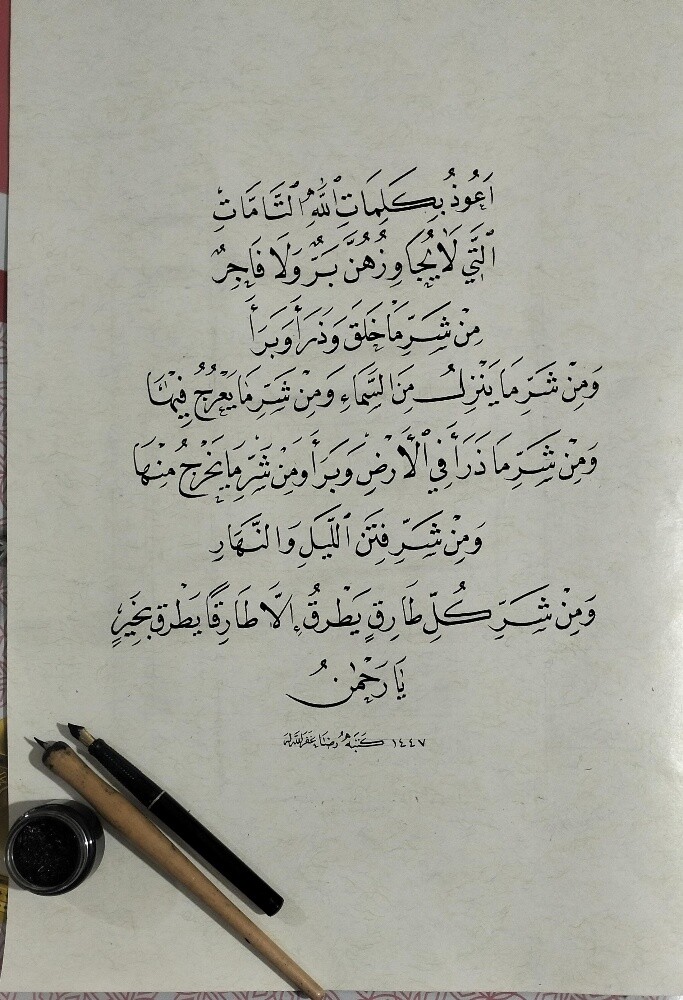 اَعُوذُ بِكَلِمَاتِ ٱللّٰهِ ٱلتَّامَّاتِ
ٱلَّتِي لَا يُجَاوِزُهُنَّ بَرٌّ وَلَا فَاجِرٌ
مِنْ شَرِّ مَا خَلَقَ وَذَرَأَ وَبَرَأَ
وَمِنْ شَرِّ مَا يَنْزِلُ مِنَ السَّمَاءِ وَمِنْ شَرِّ مَا يَعْرُجُ فِيهَا
وَمِنْ شَرِّ مَا ذَرَأَ فِي ٱلْأَرْضِ وَبَرَأَ وَمِنْ شَرِّ مَا يَخْرُجُ مِنْهَا
وَمِنْ شَرِّ فِتَنِ اللَّيْلِ وَالنَّهَارِ
وَمِنْ شَرِّ كُلِّ طَارِقٍ يَطْرُقُ إِلَّا طَارِقًا يَطْرُقُ بِخَيْرٍ
يَا رَحْمٰنُ
١٤٤٧ كَتَبَهُ رضا غفر الله له